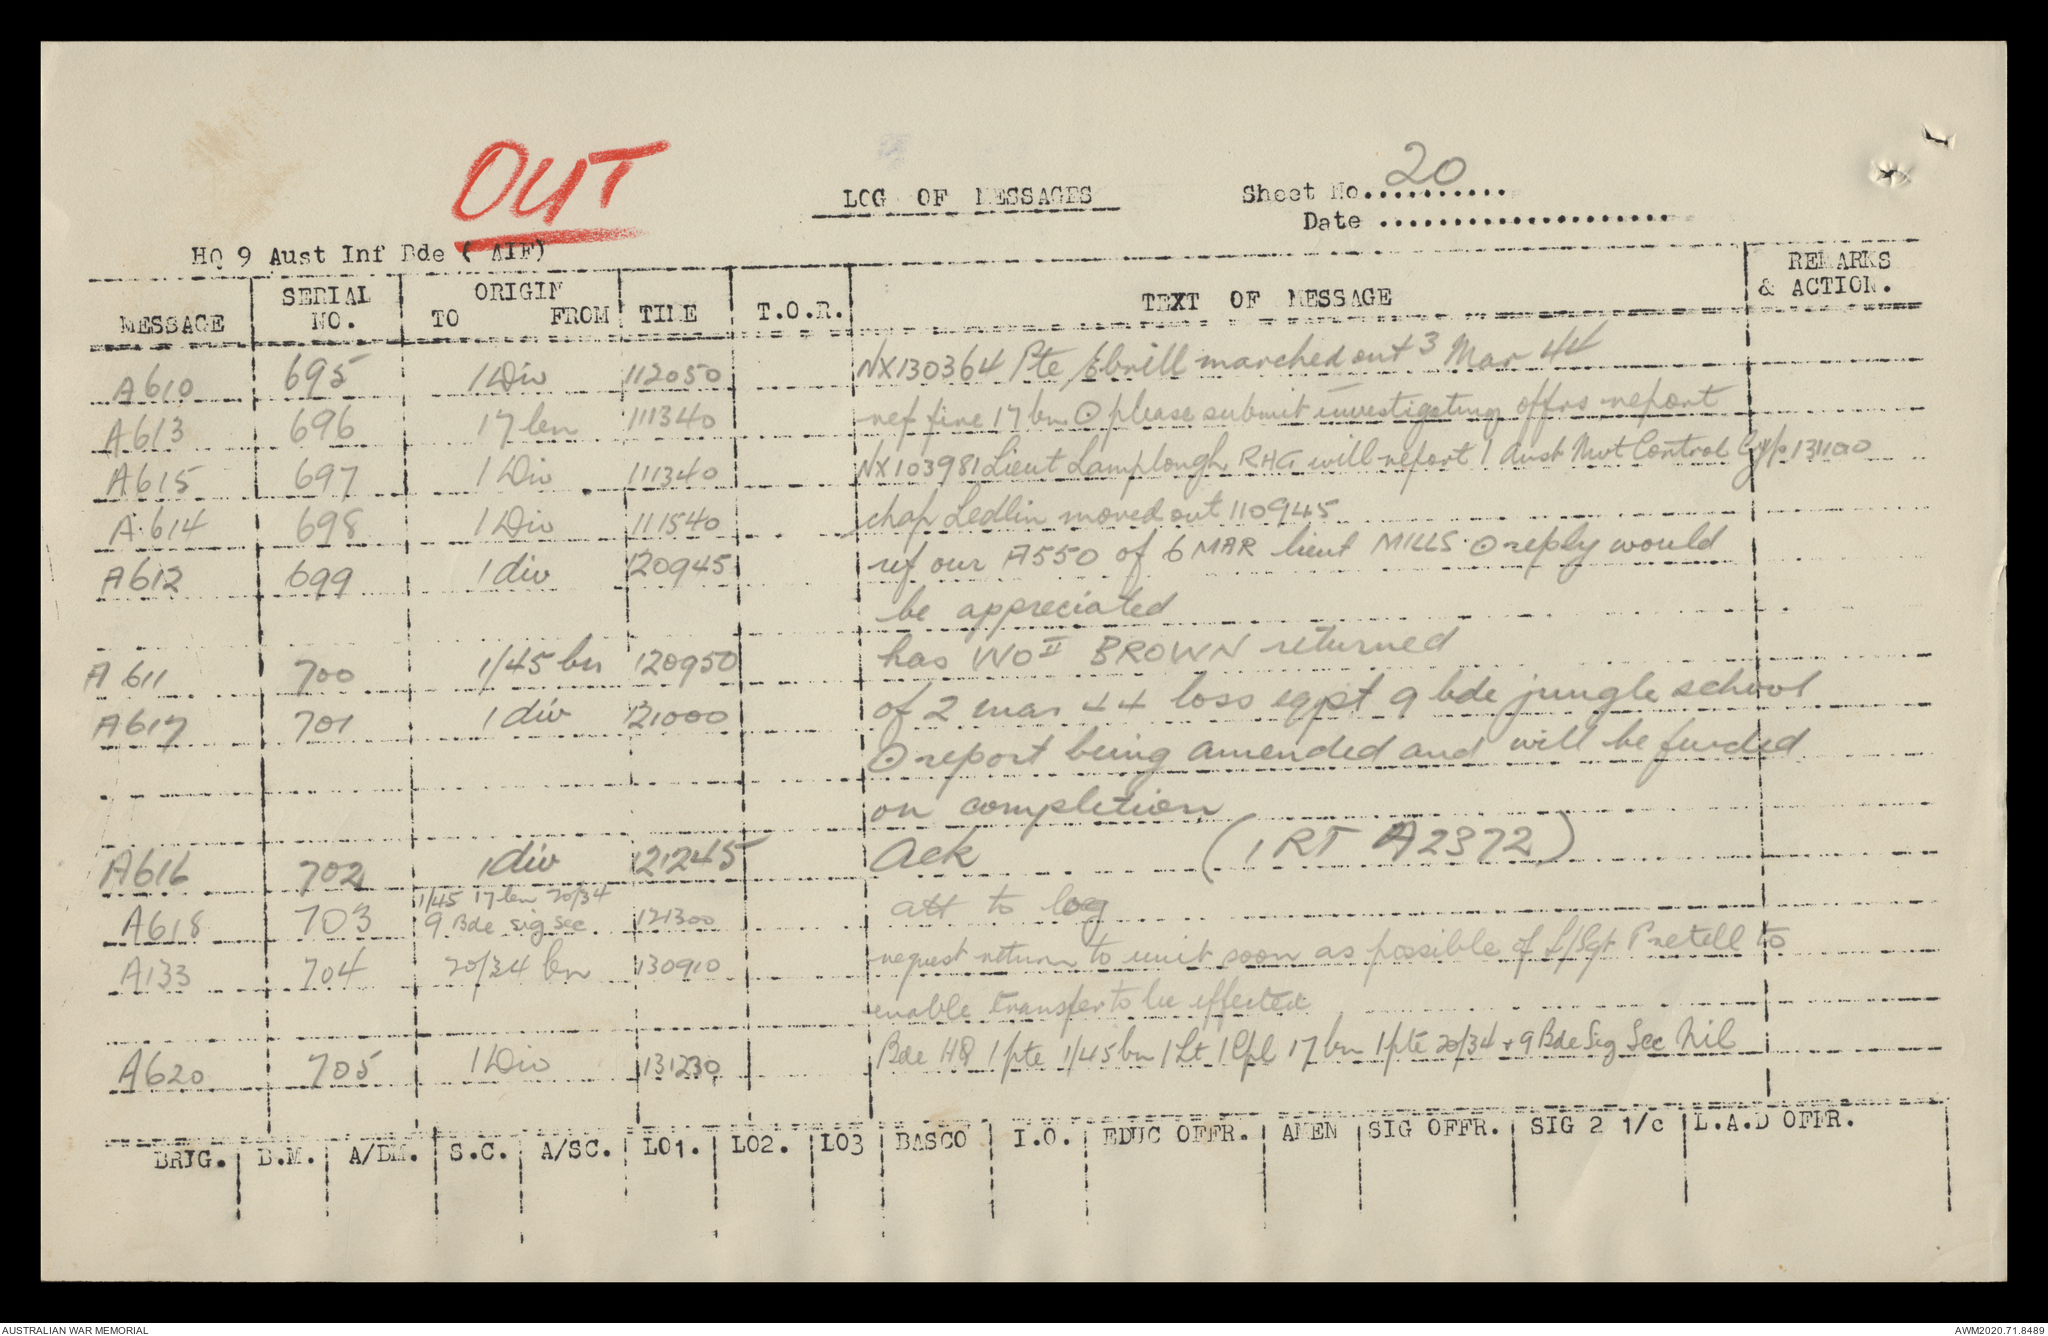 OUT
LOG OF MESSAGES
Sheet No........... 20
Date .....................
HQ 9 Aust Inf Bde ( AIF)
MESSAGE SERIAL NO. ORIGIN TO FROM TIME T.O.R. TEXT OF MESSAGE REMARKS & ACTION.
A610 695 1 Div 112050 NX130364 Pte Ebrill marched out 3 Mar 44
A613 696 17 bn 111340 ref fire 17 bn ⊙ please submit investigating offrs report
A615 697 1 Div 111340 NX103981 Lieut Lamplough RHG will report 1 Aust Mvt Control Gp 131100
A614 698 1 Div 111540 chap Ledlin moved out 110945
A612 699 1 div 120945 ref our A550 of 6 MAR lieut MILLS ⊙ reply would
be appreciated
A 611 700 1/45 bn 120950 has WO II BROWN returned
A617 701 1 div 121000 of 2 mar 44 loss eqpt 9 bde jungle school
⊙ report being amended and will be furded
on completion
A616 702 1 div 121245 Ack (1 RT A2372)
A618 703 1/45 17 bn 20/34
9 Bde sig sec 121300 att to log
A133 704 20/34 bn 130910 request return to unit soon as possible of L/Sgt Pretell to
enable transfer to be effected
A620 705 1 Div 131230 Bde HQ 1 pte 1/45 bn 1 Lt 1 Cpl 17 bn 1 pte 20/34 + 9 Bde Sig Sec Nil
BRIG. B.M. A/BM. S.C. A/SC. LO1. LO2. LO3 BASCO I.O. EDUC OFFR. AMEN SIG OFFR. SIG 2 1/c L.A.D OFFR.
AUSTRALIAN WAR MEMORIAL
AWM2020.71.8489